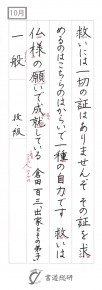 10月
救いには一切の証はありませんぞ その証を求
めるのはこちらのはからいで一種の自力です 救いは
仏様の願いで成就している 倉田百三 出家とその弟子
一般 段級
書道総研